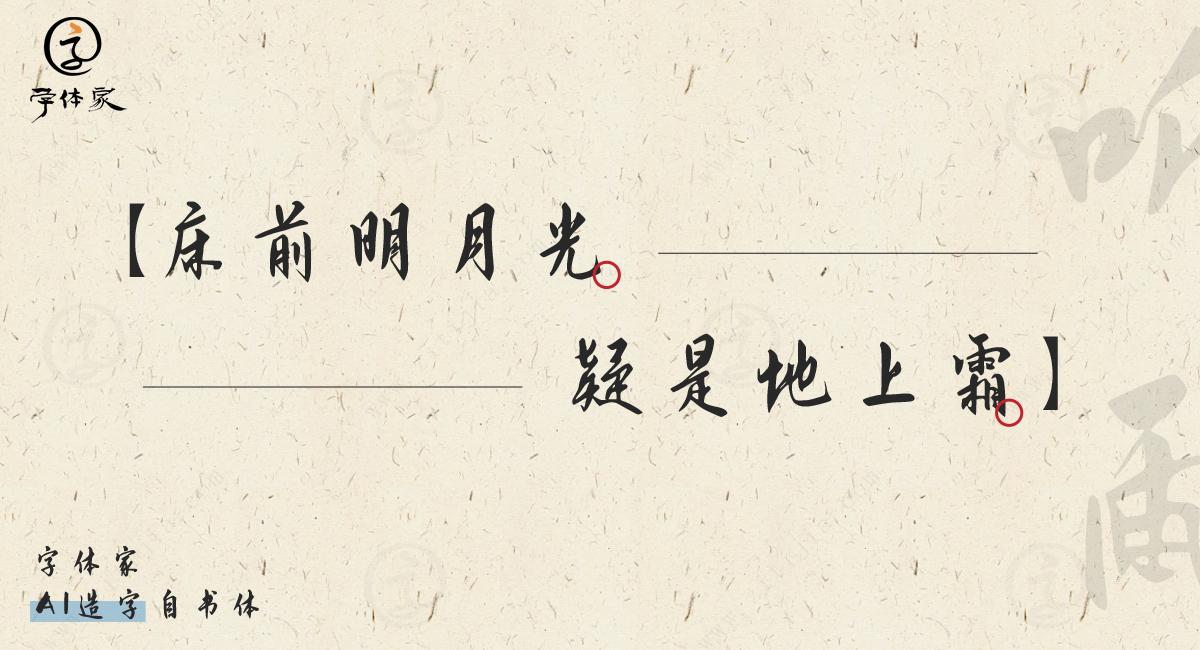 字体家
【床前明月光。
疑是地上霜】
字体家
AI造字自书体